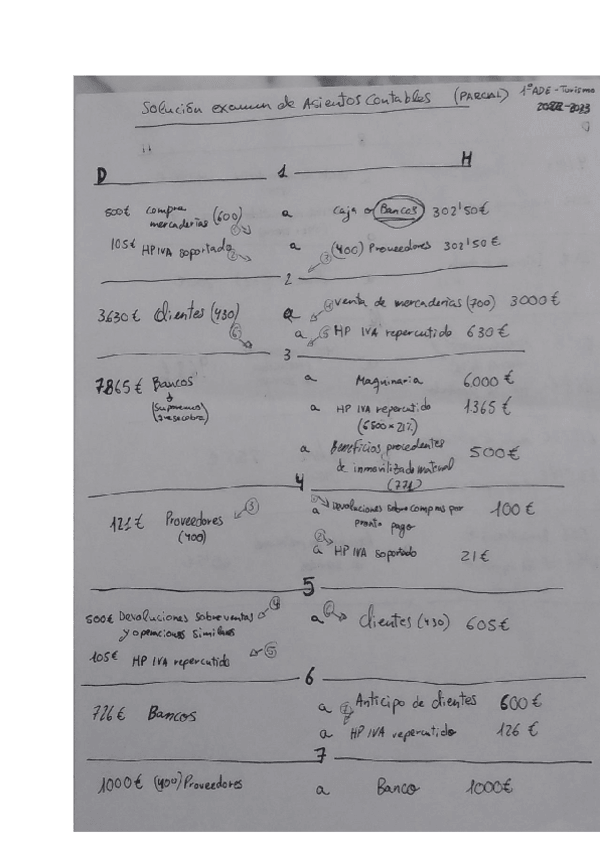 Solución examen de Asientos Contables (PARCIAL) 1º ADE - Turismo
2022-2023
D 1 H
500€ compra mercaderías (600) a Caja o Bancos 302'50€
105€ HP IVA soportado a (400) Proveedores 302'50€
2
3630€ Clientes (430) a venta de mercaderías (700) 3000€
a HP IVA repercutido 630€
3
7865€ Bancos a Maquinaria 6.000€
(suponemos que se cobra) a HP IVA repercutido 1.365€
(6500 x 21%)
a Beneficios procedentes de inmovilizado material (771) 500€
4
121€ Proveedores (400) a Devoluciones sobre compras por pronto pago 100€
a HP IVA soportado 21€
5
500€ Devoluciones sobre ventas y operaciones similares a Clientes (430) 605€
105€ HP IVA repercutido
6
726€ Bancos a Anticipo de clientes 600€
a HP IVA repercutido 126€
7
1000€ (400) Proveedores a Banco 1000€